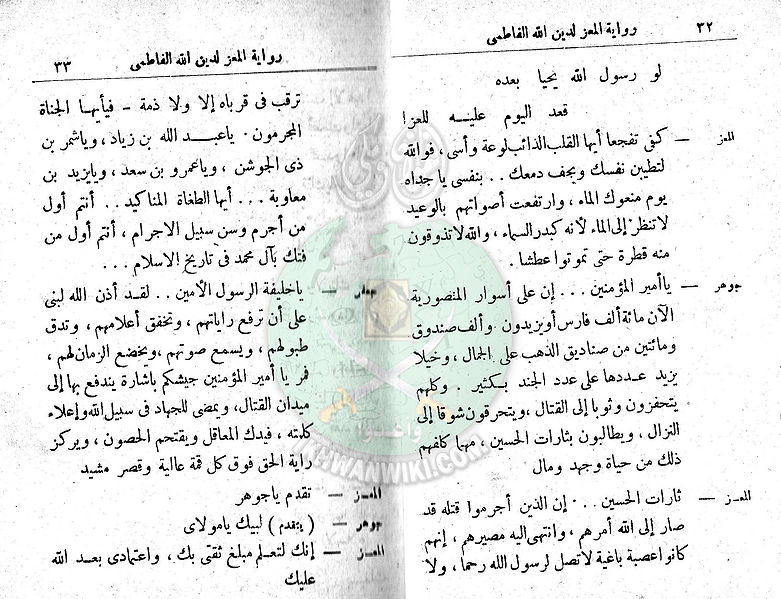 ٣٢ رواية المعز لدين الله الفاطمى
لو رسول الله يحيا بعده
قعد اليوم عليه للعزا
المعز — كفى تفجعا أيها القلب الذائب لوعة وأسى ، فوالله
لتطيبن نفسك ويجف دمعك . . بنفسى يا جداه
يوم منعوك الماء ، وارتفعت أصواتهم بالوعيد
لا تنظر إلى الماء لأنه كبدر السماء ، والله لا تذوقون
منه قطرة حتى تموتوا عطشا .
جوهر — يا أمير المؤمنين . . . إن على أسوار المنصورية
الآن مائة ألف فارس أو يزيدون وألف صندوق
ومائتين من صناديق الذهب على الجمال ، وخيلا
يزيد عددها على عدد الجند بكثير . وكلهم
يتحفزون وثوبا إلى القتال ، ويتحرقون شوقا إلى
النزال ، ويطالبون بثارات الحسين ، مهما كلفهم
ذلك من حياة وجهد ومال
المعز — ثارات الحسين . . . إن الذين أجرموا قتله قد
صار إلى الله أمرهم ، وانتهى اليه مصيرهم ، إنهم
كانوا عصبة باغية لا تصل لرسول الله رحما ، ولا
رواية المعز لدين الله الفاطمى ٣٣
ترقب فى قرباه إلا ولا ذمة - فيأيها الجناة
المجرمون . يا عبد الله بن زياد ، ويا شمر بن
ذى الجوشن ، ويا عمرو بن سعد ، ويا يزيد بن
معاوية . . . أيها الطغاة المناكيد . . أنتم أول
من أجرم وسن سبيل الاجرام ، أنتم أول من
فتك بآل محمد فى تاريخ الاسلام . . .
جعفر — يا خليفة الرسول الأمين . . لقد أذن الله لبنى
على أن ترفع راياتهم ، وتخفق أعلامهم ، وتدق
طبولهم ، ويسمع صوتهم ، ويخضع الزمان لهم ،
فمر يا أمير المؤمنين جيشكم باشارة يندفع بها إلى
ميدان القتال ، ويمضى للجهاد فى سبيل الله وإعلاء
كلمته ، فيدك المعاقل ويقتحم الحصون ، ويركز
راية الحق فوق كل قمة عالية وقصر مشيد
المعز — تقدم يا جوهر
جوهر — ( يتقدم ) لبيك يا مولاى
المعز — إنك لتعلم مبلغ ثقتى بك ، واعتمادى بعد الله
عليك
IKHWANWIKI.COM
وأعدوا